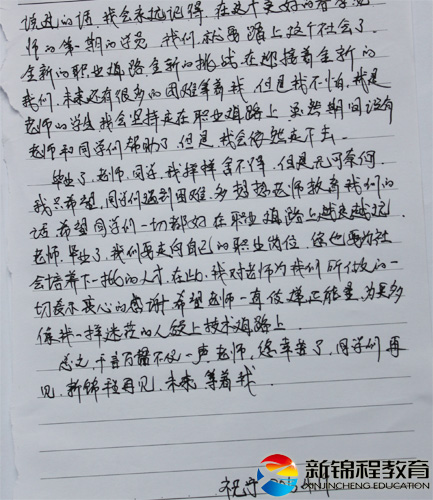 说进的话,我会永远记得,在这个美好的春学
师的第一期的学员,我们就要踏上这个社会了。
全新的职业道路,全新的挑战,在迎接着全新的
我们,未来还有很多的困难等着我,但是我不怕,我是
老师的学生,我会坚持走在职业道路上,虽然期间没有
老师和同学们帮助了,但是,我会依然走下去。
毕业了,老师,同学,我样样舍不得,但是无可奈何,
我只希望,同学们遇到困难,多想想老师教育我们的
话,希望同学们一切都好,在职业道路上越走越远,
老师,毕业了,我们要走向自己的职业岗位,您也要为社
会培养下一批的人才,在此,我对老师为我们所做的一
切表示衷心的感谢,希望老师一直传递正能量,为更多
像我一样迷茫的人铺上技术道路上。
总之,千言万语不仅一声老师,您辛苦了,同学们再
见,新锦程再见,未来,等着我。
新锦程教育
XINJINCHENG EDUCATION